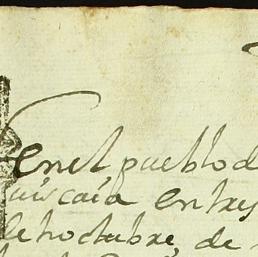 en el pueblo d
uiscaia en trey
de hoctubre, de